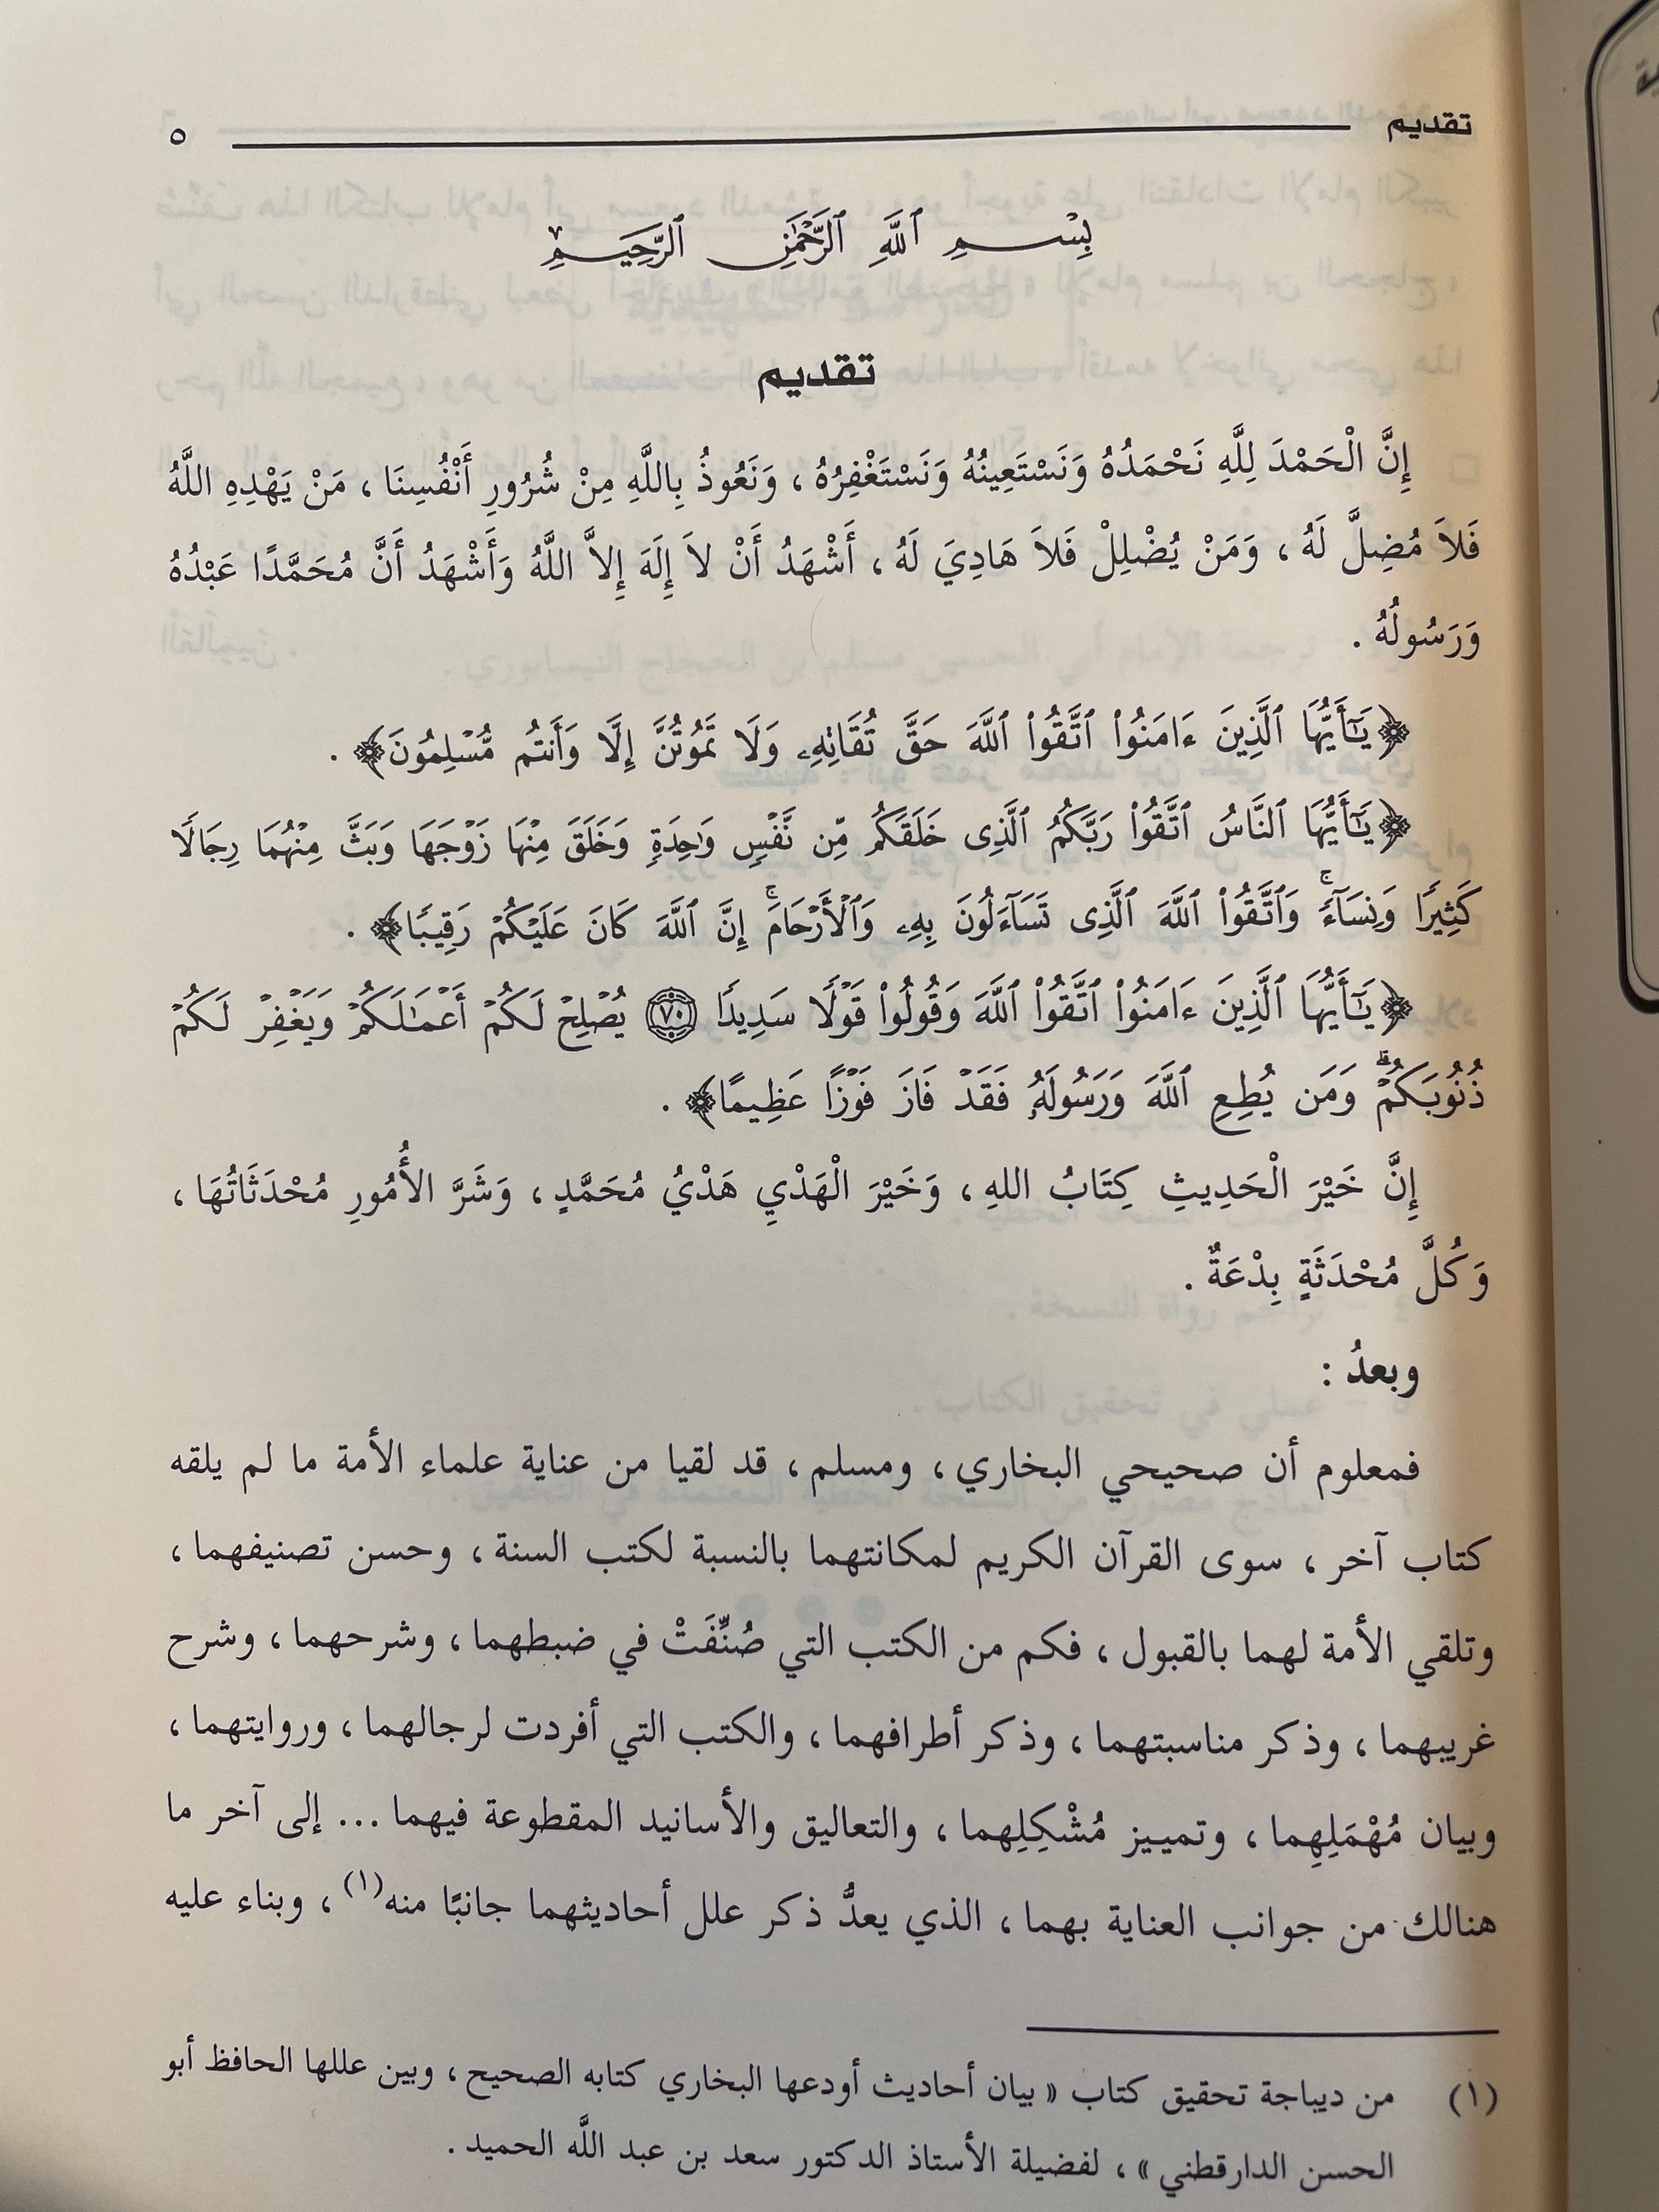 تقديم ٥
بِسْمِ ٱللَّهِ ٱلرَّحْمَٰنِ ٱلرَّحِيمِ
تقديم
إِنَّ الْحَمْدَ لِلَّهِ نَحْمَدُهُ وَنَسْتَعِينُهُ وَنَسْتَغْفِرُهُ ، وَنَعُوذُ بِاللَّهِ مِنْ شُرُورِ أَنْفُسِنَا ، مَنْ يَهْدِهِ اللَّهُ
فَلاَ مُضِلَّ لَهُ ، وَمَنْ يُضْلِلْ فَلاَ هَادِيَ لَهُ ، أَشْهَدُ أَنْ لاَ إِلَهَ إِلاَّ اللَّهُ وَأَشْهَدُ أَنَّ مُحَمَّدًا عَبْدُهُ
وَرَسُولُهُ .
﴿يَٰٓأَيُّهَا ٱلَّذِينَ ءَامَنُوا۟ ٱتَّقُوا۟ ٱللَّهَ حَقَّ تُقَاتِهِۦ وَلَا تَمُوتُنَّ إِلَّا وَأَنتُم مُّسْلِمُونَ﴾ .
﴿يَٰٓأَيُّهَا ٱلنَّاسُ ٱتَّقُوا۟ رَبَّكُمُ ٱلَّذِى خَلَقَكُم مِّن نَّفْسٍ وَٰحِدَةٍ وَخَلَقَ مِنْهَا زَوْجَهَا وَبَثَّ مِنْهُمَا رِجَالًا
كَثِيرًا وَنِسَآءً ۚ وَٱتَّقُوا۟ ٱللَّهَ ٱلَّذِى تَسَآءَلُونَ بِهِۦ وَٱلْأَرْحَامَ ۚ إِنَّ ٱللَّهَ كَانَ عَلَيْكُمْ رَقِيبًا﴾ .
﴿يَٰٓأَيُّهَا ٱلَّذِينَ ءَامَنُوا۟ ٱتَّقُوا۟ ٱللَّهَ وَقُولُوا۟ قَوْلًا سَدِيدًا ۝٧٠ يُصْلِحْ لَكُمْ أَعْمَٰلَكُمْ وَيَغْفِرْ لَكُمْ
ذُنُوبَكُمْ ۗ وَمَن يُطِعِ ٱللَّهَ وَرَسُولَهُۥ فَقَدْ فَازَ فَوْزًا عَظِيمًا﴾ .
إِنَّ خَيْرَ الْحَدِيثِ كِتَابُ اللهِ ، وَخَيْرَ الْهَدْيِ هَدْيُ مُحَمَّدٍ ، وَشَرَّ الأُمُورِ مُحْدَثَاتُهَا ،
وَكُلَّ مُحْدَثَةٍ بِدْعَةٌ .
وبعدُ :
فمعلوم أن صحيحي البخاري ، ومسلم ، قد لقيا من عناية علماء الأمة ما لم يلقه
كتاب آخر ، سوى القرآن الكريم لمكانتهما بالنسبة لكتب السنة ، وحسن تصنيفهما ،
وتلقي الأمة لهما بالقبول ، فكم من الكتب التي صُنِّفَتْ في ضبطهما ، وشرحهما ، وشرح
غريبهما ، وذكر مناسبتهما ، وذكر أطرافهما ، والكتب التي أفردت لرجالهما ، وروايتهما ،
وبيان مُهْمَلِهِما ، وتمييز مُشْكِلِهما ، والتعاليق والأسانيد المقطوعة فيهما ... إلى آخر ما
هنالك من جوانب العناية بهما ، الذي يعدُّ ذكر علل أحاديثهما جانبًا منه(١) ، وبناء عليه
(١) من ديباجة تحقيق كتاب « بيان أحاديث أودعها البخاري كتابه الصحيح ، وبين عللها الحافظ أبو
الحسن الدارقطني » ، لفضيلة الأستاذ الدكتور سعد بن عبد اللَّه الحميد .